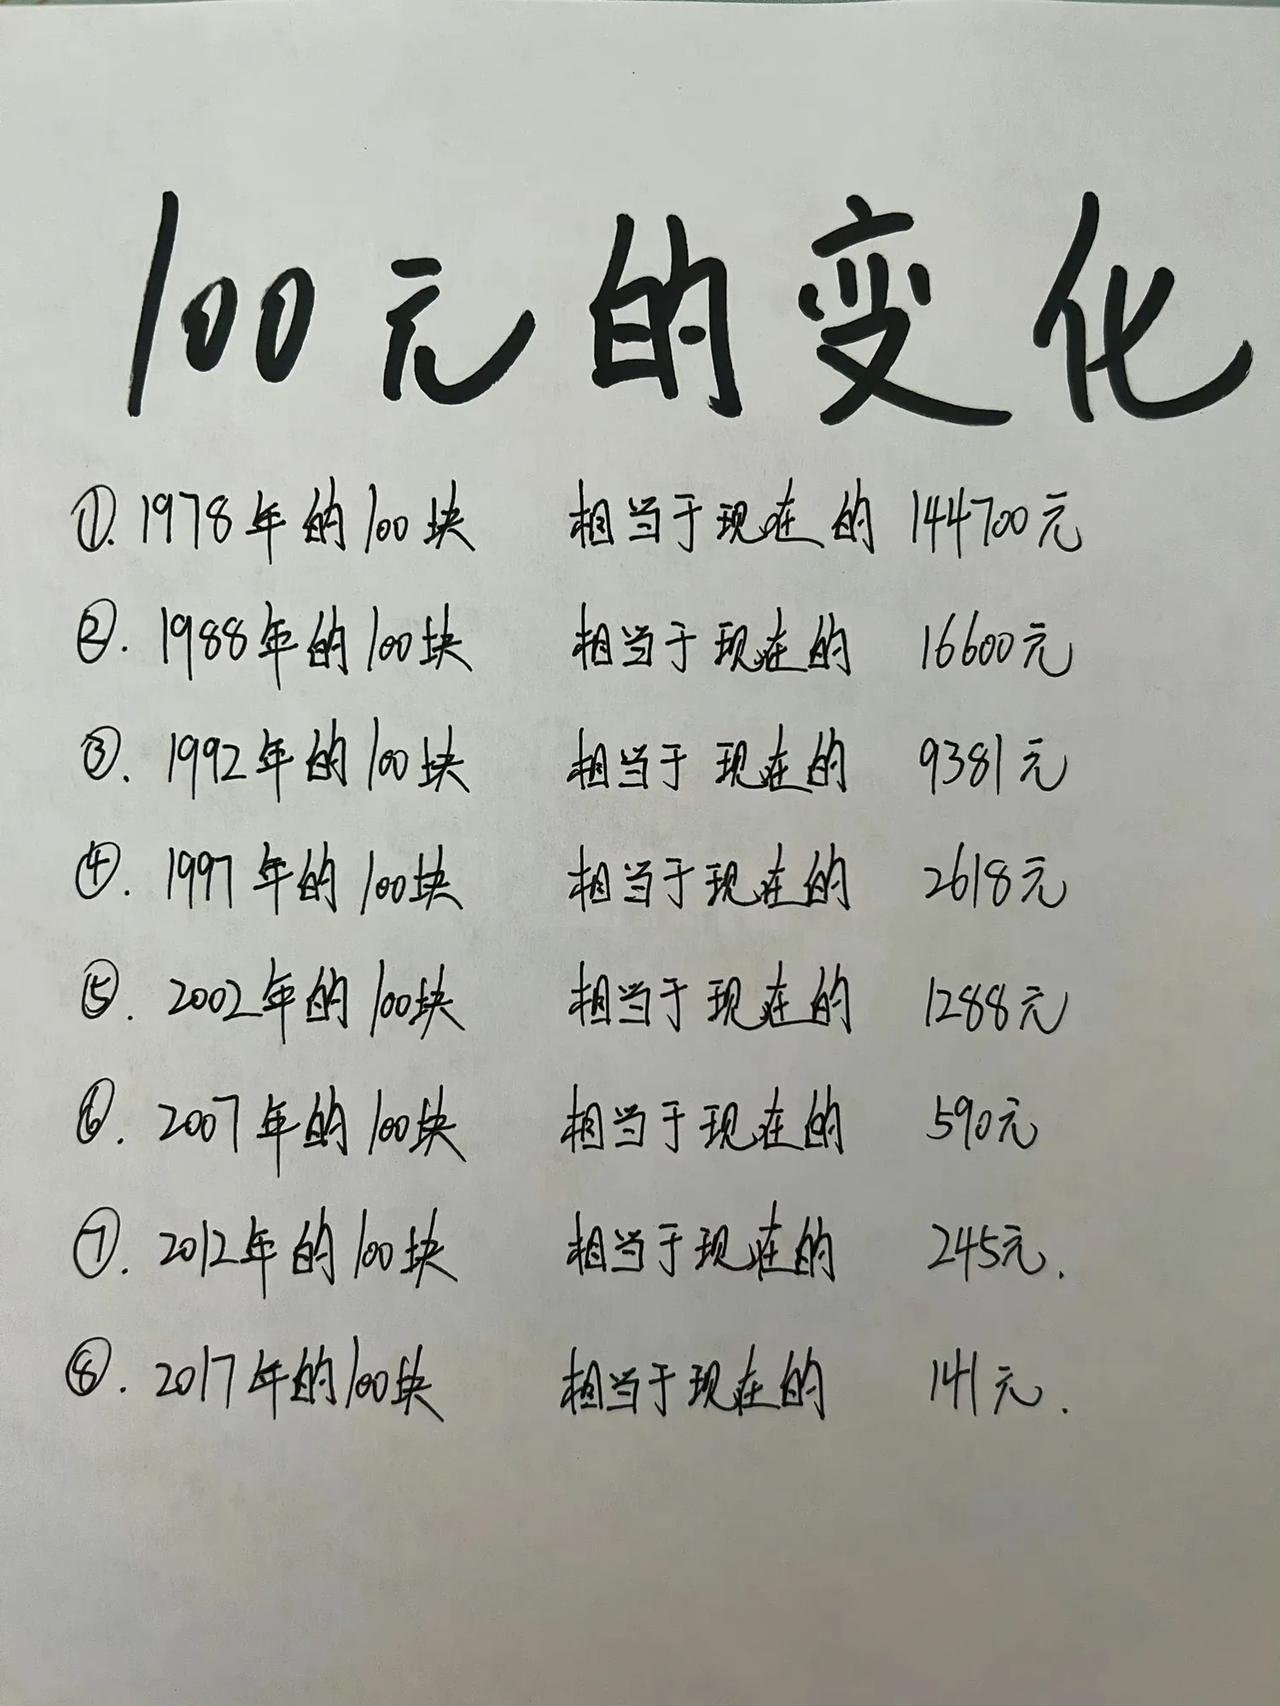 100元的变化
①.1978年的100块 相当于现在的 144700元
②.1988年的100块 相当于现在的 16600元
③.1992年的100块 相当于现在的 9381元
④.1997年的100块 相当于现在的 2618元
⑤.2002年的100块 相当于现在的 1288元
⑥.2007年的100块 相当于现在的 590元
⑦.2012年的100块 相当于现在的 245元.
⑧.2017年的100块 相当于现在的 141元.